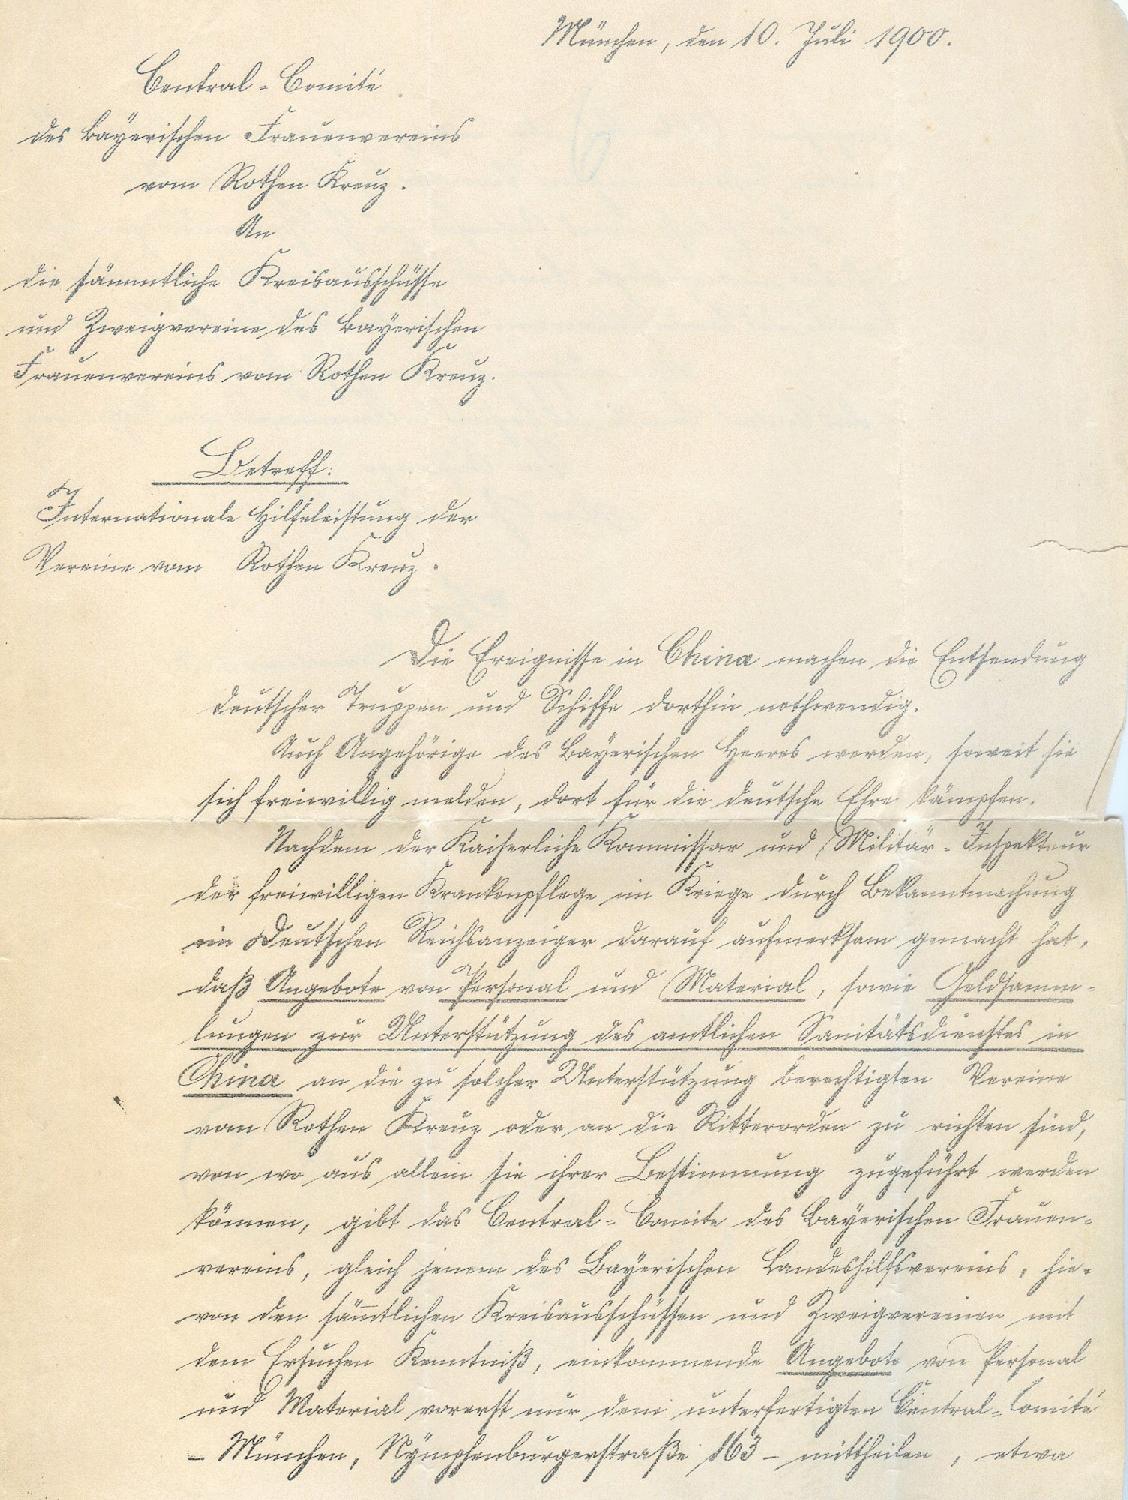 München, den 10. Juli 1900.
Central-Comité
des Bayerischen Frauenvereins
vom Rothen Kreuz.
An
die sämmtliche Kreisausschüsse
und Zweigvereine des Bayerischen
Frauenvereins vom Rothen Kreuz.
Betreff:
Internationale Hilfeleistung der
Vereine vom Rothen Kreuz.
Die Ereignisse in China machen die Entsendung
deutscher Truppen und Schiffe dorthin nothwendig.
Auch Angehörige des Bayerischen Heeres werden, soweit sie
sich freiwillig melden, dort für die deutsche Ehre kämpfen.
Nachdem der Kaiserliche Kommissar und Militär-Inspekteur
der freiwilligen Krankenpflege im Kriege durch Bekanntmachung
im Deutschen Reichsanzeiger darauf aufmerksam gemacht hat,
daß Angebote von Personal und Material, sowie Geldsamm-
lungen zur Unterstützung des amtlichen Sanitätsdienstes in
China an die zu solcher Unterstützung berechtigten Vereine
vom Rothen Kreuz oder an die Ritterorden zu richten sind,
von wo aus allein sie ihrer Bestimmung zugeführt werden
können, gibt das Central-Comite des Bayerischen Frauen-
vereins, gleich jenem des Bayerischen Landeshilfsvereins, hie-
von den säm̄tlichen Kreisausschüssen und Zweigvereinen mit
dem Ersuchen Kenntniß, einkommende Angebote von Personal
und Material vorerst nur dem unterfertigten Central-Comité
- München, Nymphenburgerstraße 163 - mittheilen, etwa